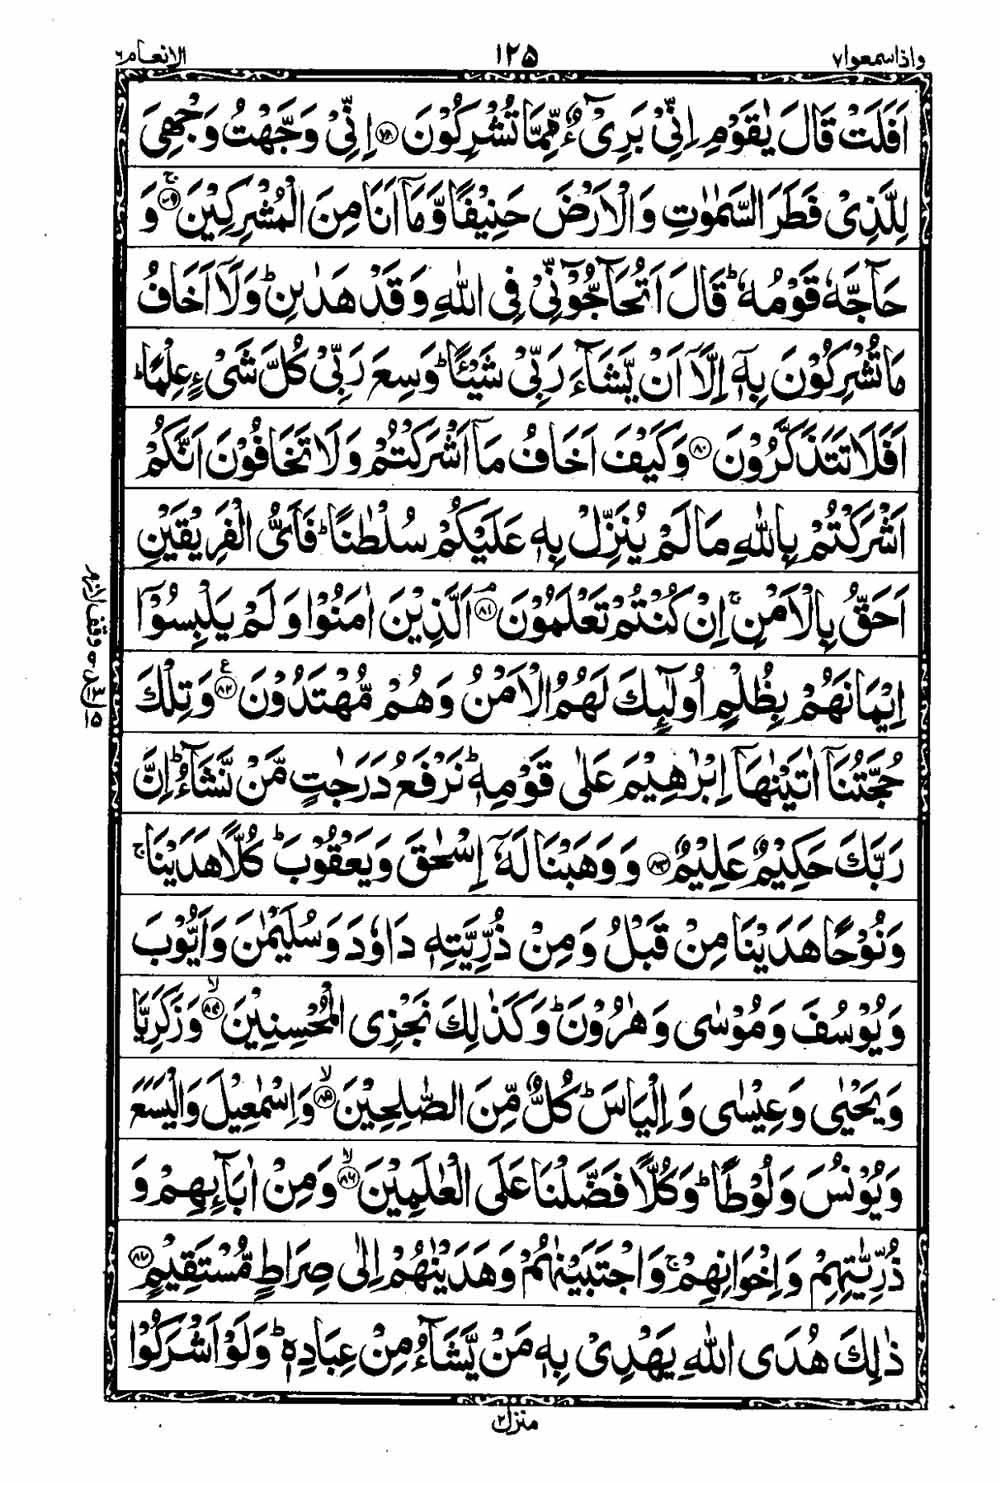 واذاسمعوا۷ ۱۲۵ الانعام۶
اَفَلَتْ قَالَ یٰقَوْمِ اِنِّیْ بَرِیْٓءٌ مِّمَّا تُشْرِكُوْنَ ﴿۷۸﴾ اِنِّیْ وَجَّهْتُ وَجْهِیَ
لِلَّذِیْ فَطَرَ السَّمٰوٰتِ وَالْاَرْضَ حَنِیْفًا وَّمَاۤ اَنَا مِنَ الْمُشْرِكِیْنَ ﴿۷۹﴾ۚ وَ
حَآجَّهٗ قَوْمُهٗ ؕ قَالَ اَتُحَآجُّوْٓنِّیْ فِی اللّٰهِ وَقَدْ هَدٰىنِ ؕ وَلَاۤ اَخَافُ
مَا تُشْرِكُوْنَ بِهٖۤ اِلَّاۤ اَنْ یَّشَآءَ رَبِّیْ شَیْـًٔا ؕ وَسِعَ رَبِّیْ كُلَّ شَیْءٍ عِلْمًا ؕ
اَفَلَا تَتَذَكَّرُوْنَ ﴿۸۰﴾ وَكَیْفَ اَخَافُ مَاۤ اَشْرَكْتُمْ وَلَا تَخَافُوْنَ اَنَّكُمْ
اَشْرَكْتُمْ بِاللّٰهِ مَا لَمْ یُنَزِّلْ بِهٖ عَلَیْكُمْ سُلْطٰنًا ؕ فَاَیُّ الْفَرِیْقَیْنِ
اَحَقُّ بِالْاَمْنِ ۚ اِنْ كُنْتُمْ تَعْلَمُوْنَ ﴿۸۱﴾ۘ اَلَّذِیْنَ اٰمَنُوْا وَلَمْ یَلْبِسُوْۤا
اِیْمَانَهُمْ بِظُلْمٍ اُولٰٓىِٕكَ لَهُمُ الْاَمْنُ وَهُمْ مُّهْتَدُوْنَ ﴿۸۲﴾ وَتِلْكَ
حُجَّتُنَاۤ اٰتَیْنٰهَاۤ اِبْرٰهِیْمَ عَلٰی قَوْمِهٖ ؕ نَرْفَعُ دَرَجٰتٍ مَّنْ نَّشَآءُ ؕ اِنَّ
رَبَّكَ حَكِیْمٌ عَلِیْمٌ ﴿۸۳﴾ وَوَهَبْنَا لَهٗۤ اِسْحٰقَ وَیَعْقُوْبَ ؕ كُلًّا هَدَیْنَا ۚ
وَنُوْحًا هَدَیْنَا مِنْ قَبْلُ وَمِنْ ذُرِّیَّتِهٖ دَاوٗدَ وَسُلَیْمٰنَ وَاَیُّوْبَ
وَیُوْسُفَ وَمُوْسٰی وَهٰرُوْنَ ؕ وَكَذٰلِكَ نَجْزِی الْمُحْسِنِیْنَ ﴿۸۴﴾ۙ وَزَكَرِیَّا
وَیَحْیٰی وَعِیْسٰی وَاِلْیَاسَ ؕ كُلٌّ مِّنَ الصّٰلِحِیْنَ ﴿۸۵﴾ۙ وَاِسْمٰعِیْلَ وَالْیَسَعَ
وَیُوْنُسَ وَلُوْطًا ؕ وَكُلًّا فَضَّلْنَا عَلَی الْعٰلَمِیْنَ ﴿۸۶﴾ۙ وَمِنْ اٰبَآىِٕهِمْ وَ
ذُرِّیّٰتِهِمْ وَاِخْوَانِهِمْ ۚ وَاجْتَبَیْنٰهُمْ وَهَدَیْنٰهُمْ اِلٰی صِرَاطٍ مُّسْتَقِیْمٍ ﴿۸۷﴾
ذٰلِكَ هُدَی اللّٰهِ یَهْدِیْ بِهٖ مَنْ یَّشَآءُ مِنْ عِبَادِهٖ ؕ وَلَوْ اَشْرَكُوْا
منزل۲